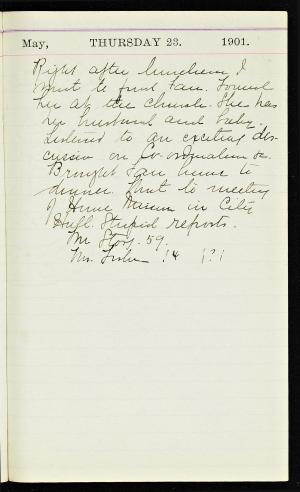 May, THURSDAY 23. 1901.
Right after luncheon I
went to find Fan. Found
her at the church. She has
her husband and baby.
Listened to an exciting dis-
cussion on Co-ordination &c.
Brought Fan home to
dinner. Went to meeting
of Home Mission in City
Hall. Stupid reports.
Mr 59.
Mr. 14 1?1